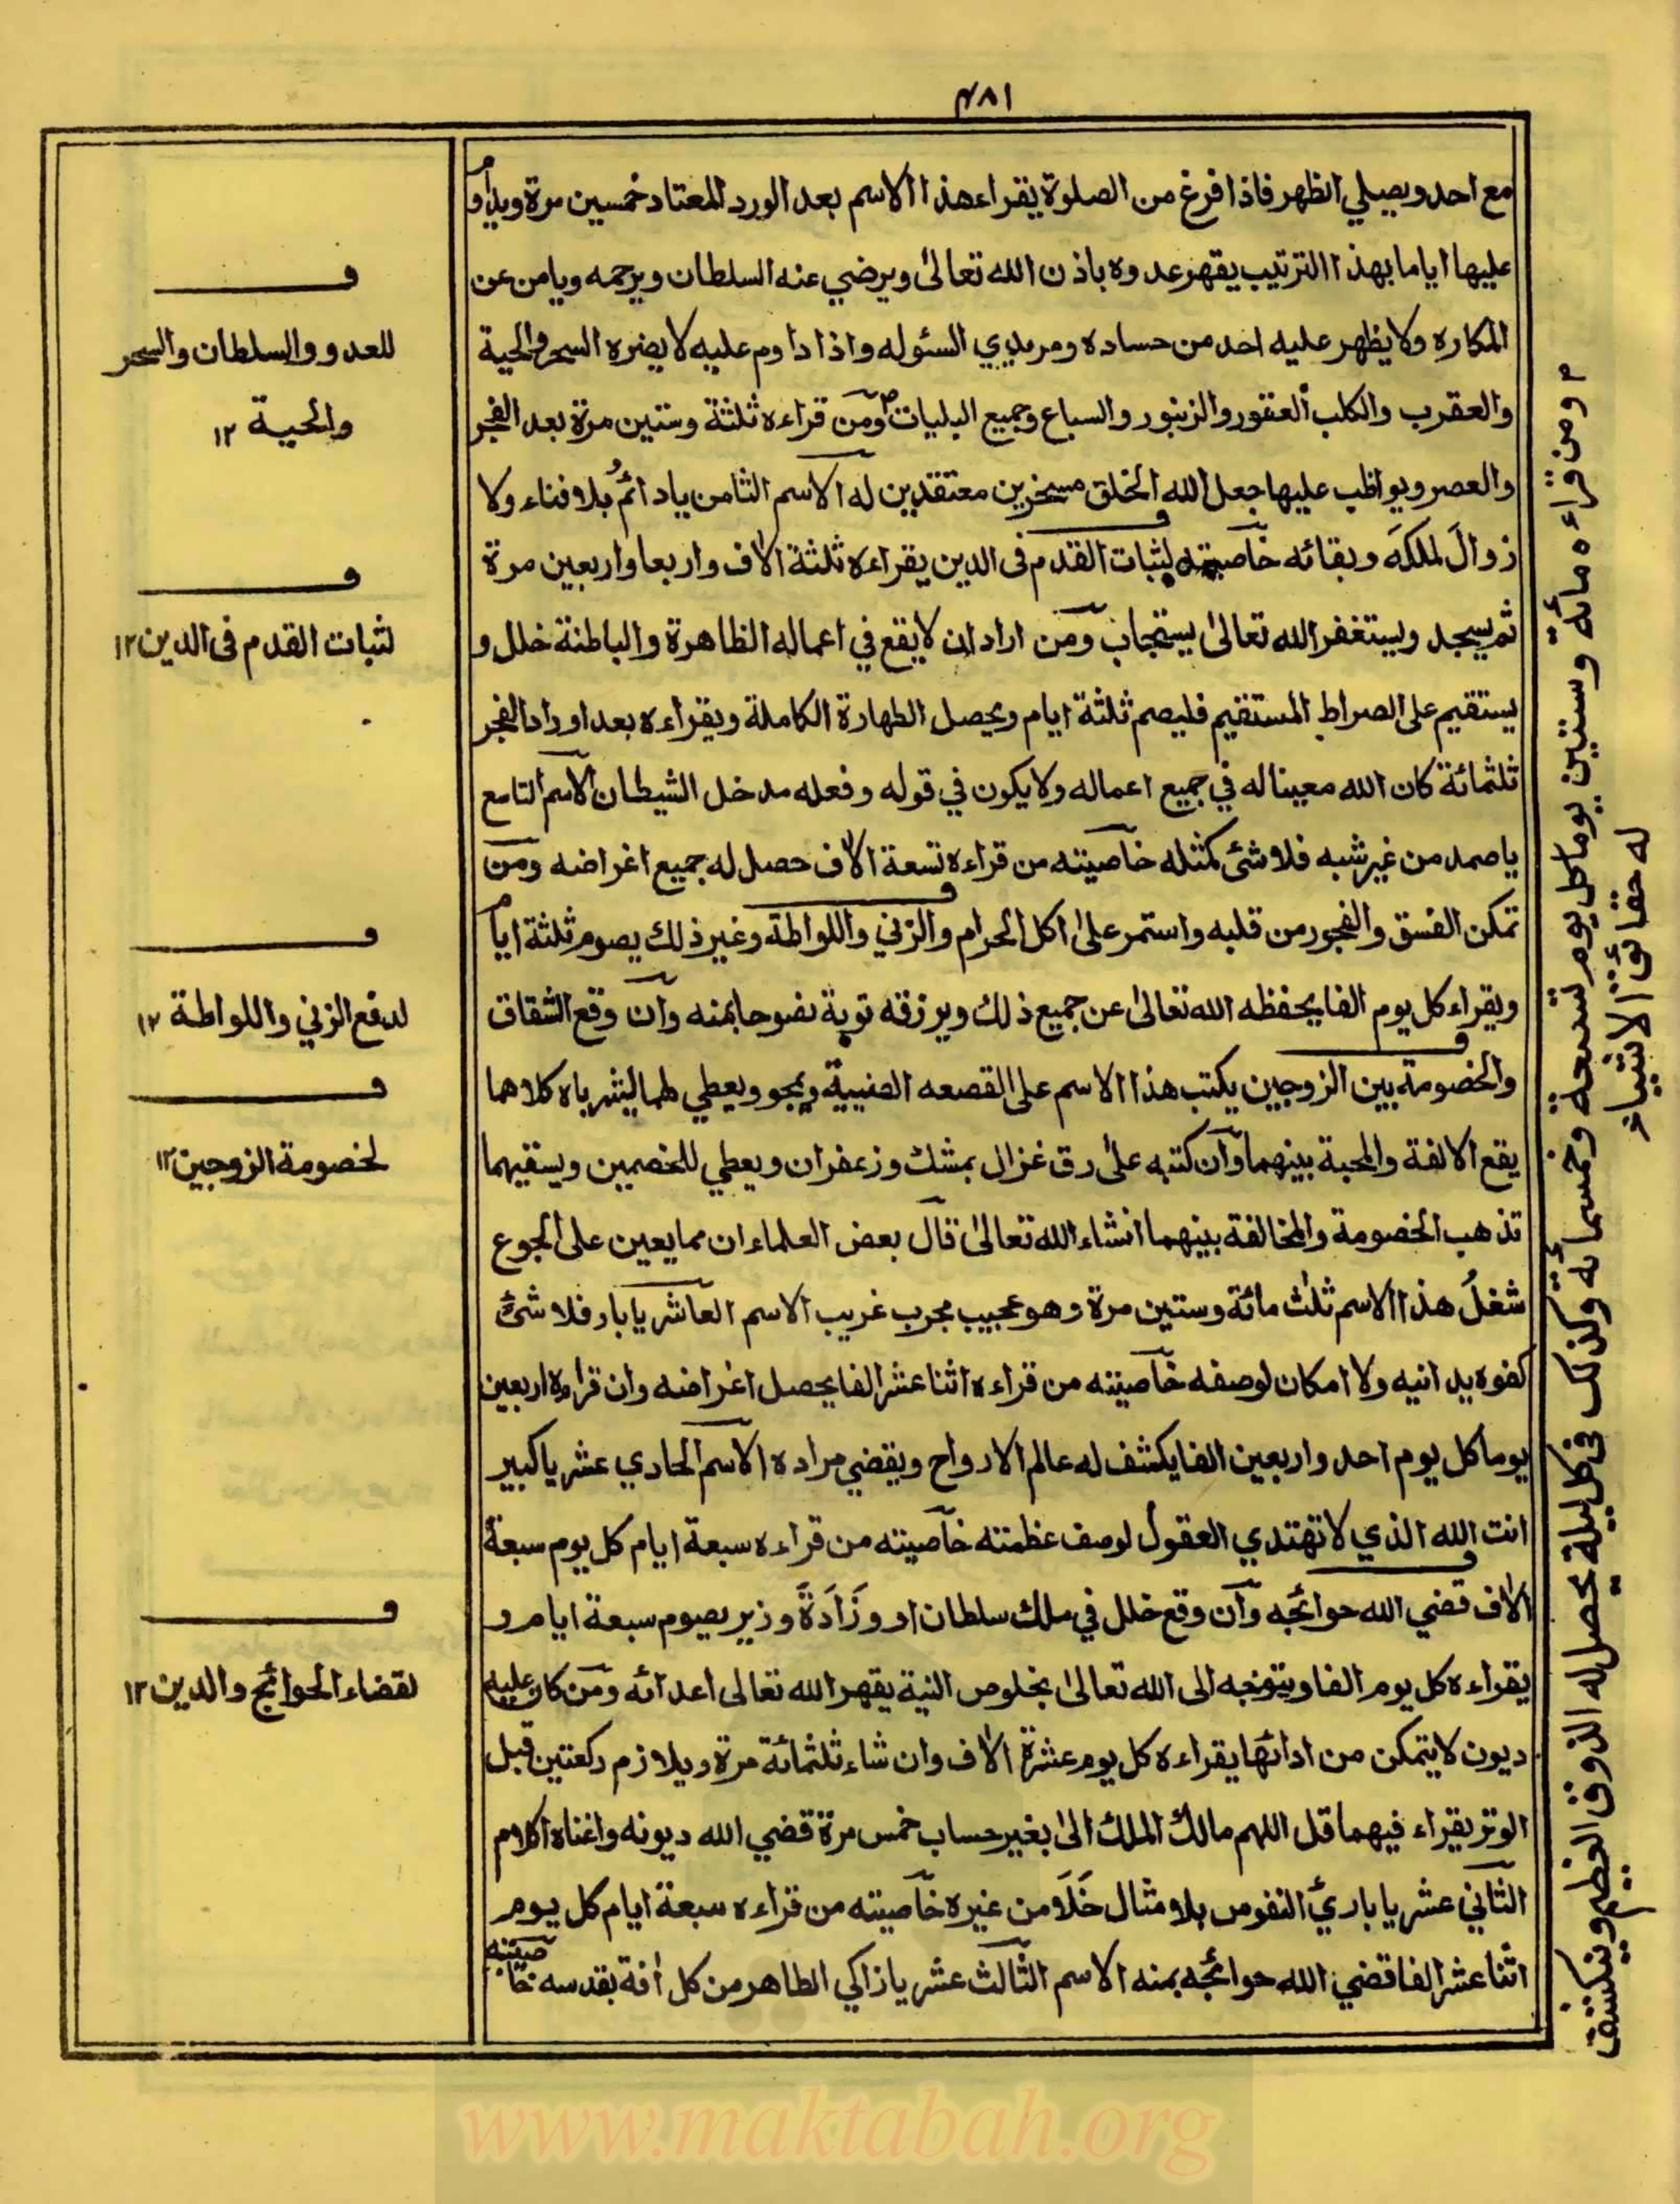 ۴۸۱
مع احد ويصلي الظهر فاذا فرغ من الصلوة يقراء هذا الاسم بعد الورد المعتاد خمسين مرة ويداوم
عليها اياما بهذا الترتيب يقهر عدوه باذن الله تعالى ويرضي عنه السلطان ويرحمه ويامن عن
المكاره ولا يظهر عليه احد من حساده ومريدي السوله واذا داوم عليه لا يضره السحر والحية
والعقرب والكلب العقور والزنبور والسباع وجميع البليات ومن قراءه ثلثة وستين مرة بعد الفجر
والعصر ويواظب عليها جعل الله الخلق مسخرين معتقدين له الاسم الثامن يا دائمُ بلا فناء ولا
زوالَ لملكهَ وبقائه خاصيته لثبات القدم فى الدين يقراءه ثلثة الاف واربعا واربعين مرة
ثم يسجد ويستغفر الله تعالىٰ يستجاب ومن اراد ان لا يقع في اعماله الظاهرة والباطنة خلل و
يستقيم على الصراط المستقيم فليصم ثلثة ايام ويحصل الطهارة الكاملة ويقراءه بعد اوراد الفجر
ثلثمائة كان الله معينا له في جميع اعماله ولا يكون في قوله وفعله مدخل الشيطان الاسم التاسع
يا صمد من غير شبه فلا شئ كمثله خاصيته من قراءه تسعة الاف حصل له جميع اغراضه ومن
تمكن الفسق والفجور من قلبه واستمر علىٰ اكل الحرام والزني واللواطة وغير ذلك يصوم ثلثة ايام
ويقراء كل يوم الفا يحفظه الله تعالىٰ عن جميع ذلك ويرزقه توبة نصوحا بمنه وان وقع الشقاق
والخصومة بين الزوجين يكتب هذا الاسم على القصعه الصينيية ويمحو ويعطي لهما ليشرباه كلاهما
يقع الالفة والمحبة بينهما وان كتبه علىٰ رق غزال بمشك وزعفران ويعطي للخصمين ويسقيهما
تذهب الخصومة والمخالفة بينهما انشاء الله تعالىٰ قال بعض العلماء ان مما يعين على الجوع
شغلُ هذا الاسم ثلث مائة وستين مرة وهو عجيب مجرب غريب الاسم العاشر يا بار فلا شئ
كفوه يدانيه ولا امكان لوصفه خاصيته من قراءه اثنا عشر الفا يحصل اغراضه وان قراءه اربعين
يوما كل يوم احد واربعين الفا يكشف له عالم الارواح ويقضي مراده الاسم الحادي عشر يا كبير
انت الله الذي لا تهتدي العقول لوصف عظمته خاصيته من قراءه سبعة ايام كل يوم سبعة
الاف قضي الله حوائجه وان وقع خلل في ملك سلطان او وزَارَةَ وزير يصوم سبعة ايام و
يقراءه كل يوم الفا ويتوجه الى الله تعالىٰ بخلوص النية يقهر الله تعالى اعدائه ومن كان عليه
ديون لا يتمكن من ادائها يقراءه كل يوم عشرة الاف وان شاء ثلثمائة مرة ويلازم ركعتين قبل
الوتر يقراء فيهما قل اللهم مالك الملك الىٰ بغير حساب خمس مرة قضي الله ديونه واغناه الاسم
الثاني عشر يا بارئَ النفوس بلا مثال خَلَا من غيره خاصيته من قراءه سبعة ايام كل يوم
اثنا عشر الفا قضي الله حوائجه بمنه الاسم الثالث عشر يا زاكي الطاهر من كل افة بقدسه خاصيته
للعدو والسلطان والسحر
والحية ۱۲
لثبات القدم فى الدين ۱۲
لدفع الزني واللواطة ۱۲
لخصومة الزوجين ۱۲
لقضاء الحوائج والدين ۱۲
ومن قراءه مائة وستين يوما كل يوم تسعة وخمسمائة وكذلك في كل ليلة يحصل له الذوق العظيم وينكشف
له حقائق الاشياء
www.maktabah.org